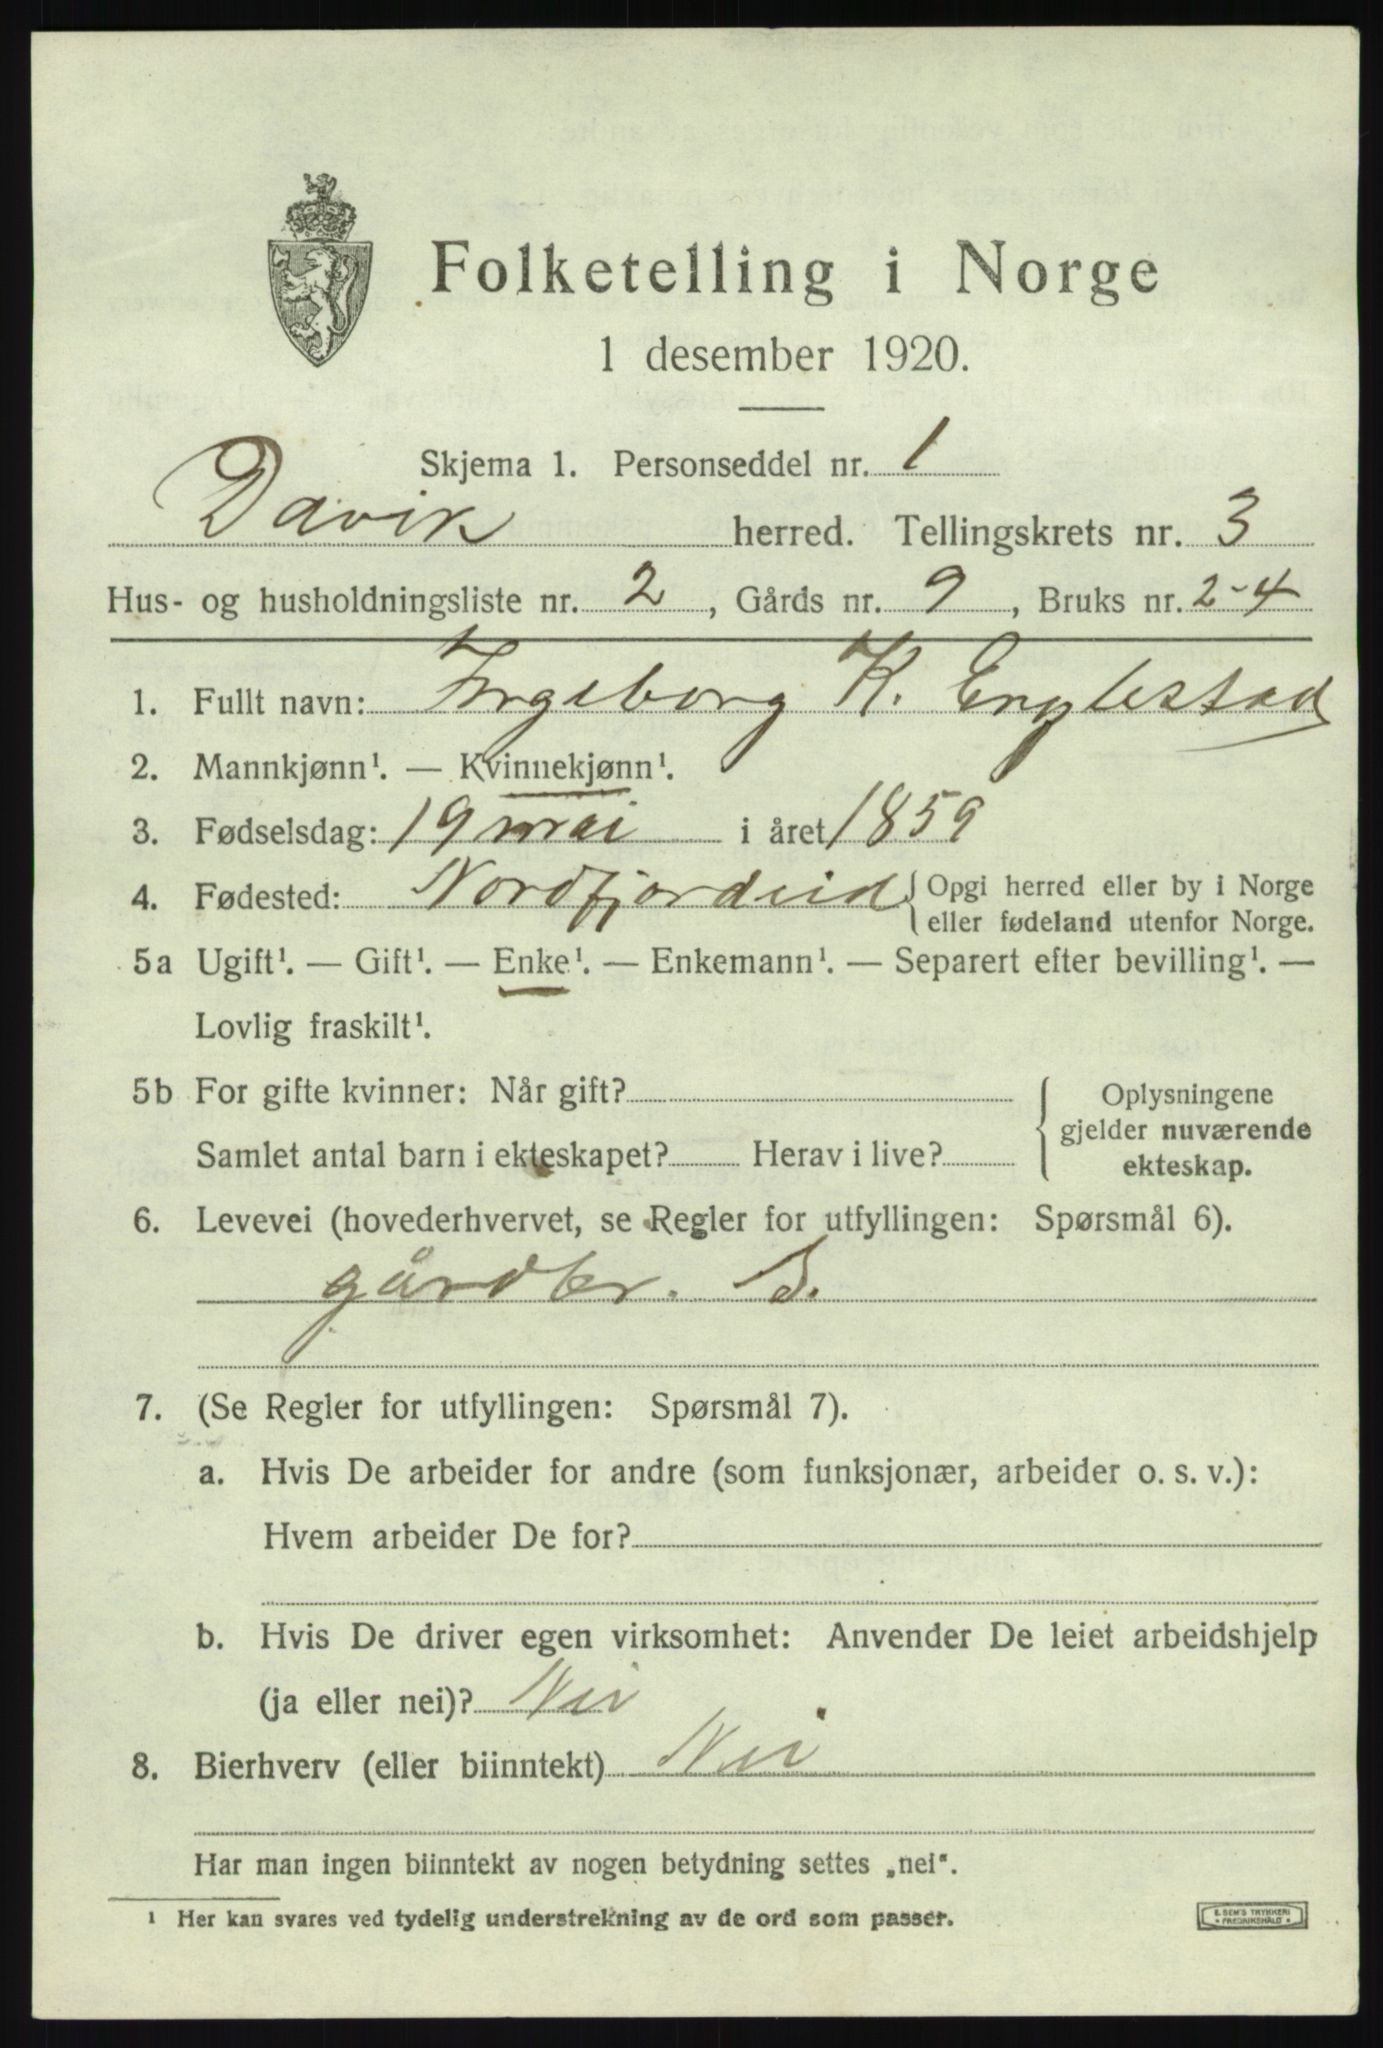 Folketelling i Norge
1 desember 1920.
Skjema 1. Personseddel nr. 1
Davik herred. Tellingskrets nr. 3
Hus- og husholdningsliste nr. 2, Gårds nr. 9, Bruks nr. 2-4
1. Fullt navn: Ingeborg K. Englestad
2. Mannkjønn¹. — Kvinnekjønn¹.
3. Fødselsdag: 19 mai i året 1859
4. Fødested: Nordfjordeid { Opgi herred eller by i Norge
eller fødeland utenfor Norge.
5a Ugift¹. — Gift¹. — Enke¹. — Enkemann¹. — Separert efter bevilling¹. —
Lovlig fraskilt¹.
5b For gifte kvinner: Når gift?
Samlet antal barn i ekteskapet? Herav i live?
{ Oplysningene
gjelder nuværende
ekteskap.
6. Levevei (hovederhvervet, se Regler for utfyllingen: Spørsmål 6).
gårdbr. S.
7. (Se Regler for utfyllingen: Spørsmål 7).
a. Hvis De arbeider for andre (som funksjonær, arbeider o. s. v.):
Hvem arbeider De for?
b. Hvis De driver egen virksomhet: Anvender De leiet arbeidshjelp
(ja eller nei)? Nei
8. Bierhverv (eller biinntekt) Nei
Har man ingen biinntekt av nogen betydning settes „nei“.
¹ Her kan svares ved tydelig understrekning av de ord som passer.
E. SEM'S TRYKKERI
* FREDRIKSHALD *